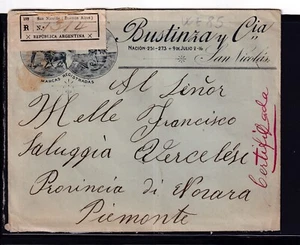 San Nicolás (Buenos Aires)
R
REPÚBLICA ARGENTINA
Bustinza y Cía
NACION-251-273 + 9 DE JULIO 2-16
San Nicolás
MARCAS REGISTRADAS
Al Señor
Melle Francisco
Saluggia Vercelése
Provincia di Novara
Piemonte
Certificada